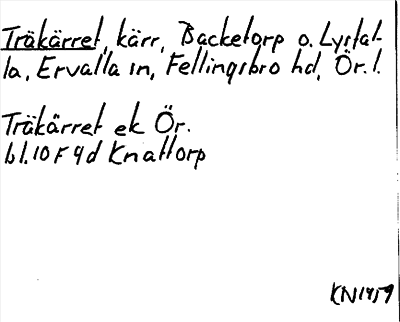 Träkärret, kärr, Backetorp o. Lystal-
la, Ervalla sn, Fellingsbro hd, Ör. l.
Träkärret ek Ör.
bl. 10 F 9d Knattorp
KN1959